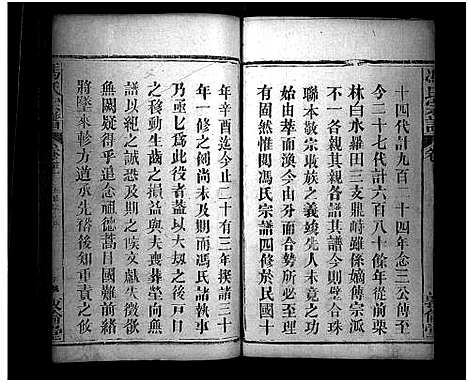 馮氏宗譜
十四代計九百二十四年念三公傳至
今二十七代計六百八十餘年從前栗
林白水羅田三支鼎峙雖係嫡傳宗派
不一各親其親各譜其譜今則璧合珠
聯本敬宗收族之義竣先人未竟之功
始由萃而渙今由分而合勢所必至理
有固然惟閱馮氏宗譜四修於民國十
年辛酉迄今止二十有三年揆諸三十
年一修之例尚未及期而馮氏諸執事
乃亟亟為此役者蓋以大刼之後戶口
之移動生齒之損益與夫喪葬塋向無
譜以親之誠恐及期之時文獻失徵欲
無闕疑得乎追念祖德蒿目國難前緒
將墜來軫方遒承先裕後知重責之攸
馮氏宗譜
敦倫堂